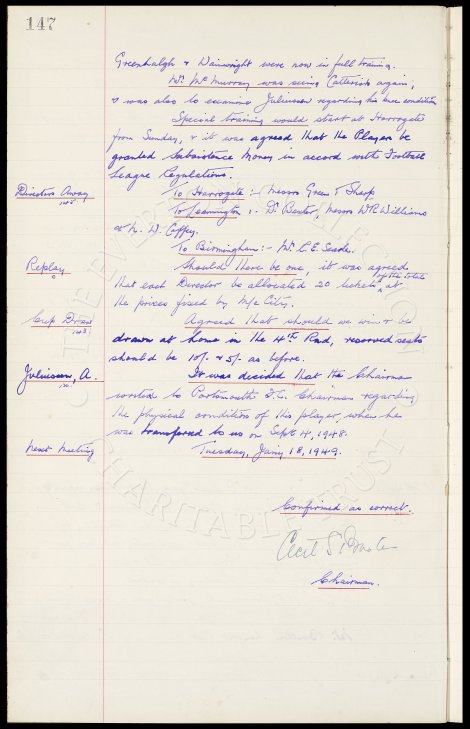 147
Greenhalgh & Wainwright were now in full training.
Mr. McMurray was seeing Catterick again,
& was also to examine Juliussen regarding his knee condition
Special training would start at Harrogate
from Sunday, & it was agreed that the Players be
granted Subsistence Money in accord with Football
League Regulations.
Directors Away
To Harrogate :- Messrs Green & Sharp
To Leamington :- Dr. Baxter, Messrs W.R. Williams
& N. W. Coffey.
To Birmingham :- Mr. C.E. Searle.
Replay
Should there be one, it was agreed
that each Director be allocated 20 tickets at
the prices fixed by M/c City.
Cup Draw
Agreed that should we win & be
drawn at home in the 4th Rnd, reserved seats
should be 10/- & 5/- as before.
Juliussen, A.
It was decided that the Chairman
to Portsmouth F.C. Chairman regarding
the physical condition of this player, when he
was transferred to us on Sept 4, 1948.
Next Meeting
Tuesday, Jany 18, 1949.
Confirmed as correct.
Cecil S. Baxter
Chairman.
THE EVERTON COLLECTION
CHARITABLE TRUST